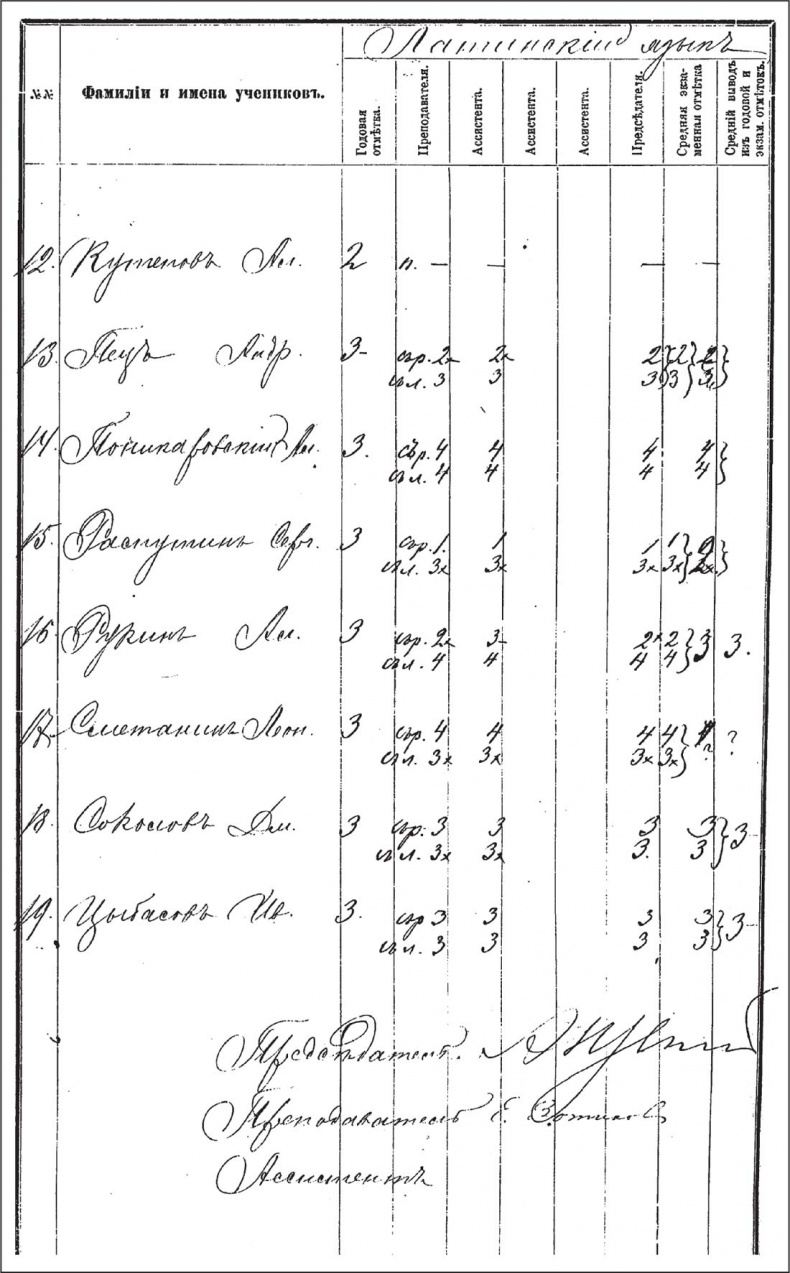 Латинскій языкъ
№№ Фамиліи и имена учениковъ. Годовая отмѣтка. Преподавателя. Ассистента. Ассистента. Ассистента. Предсѣдателя. Средняя экза- менная отмѣтка Средній выводъ изъ годовой и экзам. отмѣтокъ.
12. Кутеповъ Ал. 2 п. — — — —
13. Пецъ Андр. 3- стр. 2х 2х 2 2 2
сл. 3 3 3 3 3
14. Поникаровскій Ал. 3. стр. 4 4 4 4
сл. 4 4 4 4
15. Распутинъ Серг. 3 стр. 1. 1 1 1
сл. 3х 3х 3х 3х 2х
16. Рукинъ Ал. 3 стр. 2х 3- 2х 2 3 3.
сл. 4 4 4 4
17. Сметанинъ Леон. 3 стр. 4 4 4 4 ?
сл. 3х 3х 3х 3х ?
18. Соколовъ Дм. 3 стр. 3 3 3 3 3-
сл. 3х 3х 3. 3
19. Цыбасовъ Ив. 3. стр 3 3 3 3 3-
сл. 3 3 3 3
Предсѣдатель.
Преподаватель Е. Зотиковъ
Ассистентъ